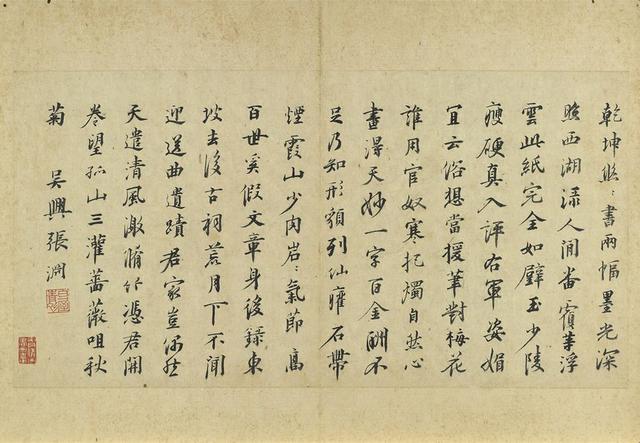 乾坤熙〻書兩幅墨光深
照西湖淥人間富貴等浮
雲此紙完全如璧玉少陵
瘦硬真入評右軍姿媚
宜云俗想當援筆對梅花
誰用官奴寒把燭自然心
畫得天妙一字百金酬不
足乃知形額列仙癯石帶
煙霞山少肉岩〻氣節高
百世奚假文章身後錄東
坡去後古祠荒月下不聞
迎送曲遺蹟君家豈偶然
天遣清風激脩竹憑君開
卷望孤山三灌薔薇咀秋
菊 吳興張淵